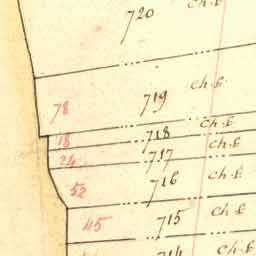 720 ch.l
78 719 ch.l
18 718 ch.l
24 717 ch.l
52 716 ch.l
45 715 ch.l
714 ch.l